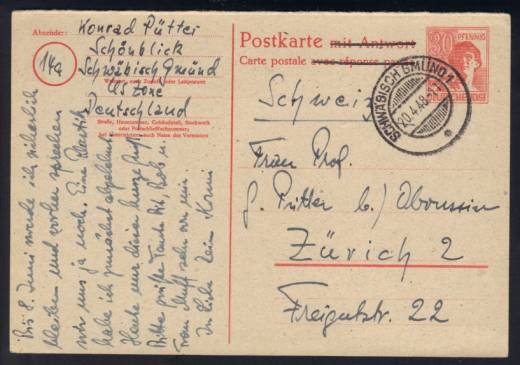 Absender:
Konrad Pütter
Schönblick
Schwäbisch Gmünd
US Zone
Deutschland
14a
Wohnort, auch Zustell- oder Leitpostamt
Straße, Hausnummer, Gebäudeteil, Stockwerk
oder Postschließfachnummer;
bei Untermietern auch Name des Vermieters
Bis 8. Juni werde ich sicherlich
bleiben und vorher sprechen
wir uns ja noch. Eine
habe ich zunächst abgelehnt
Heute nur diesen kurzen
Bitte grüße Tante
Frau sehr von mir.
In Liebe Dein Konni
Postkarte mit Antwort
Carte postale avec réponse payée
30 PFENNIG
SCHWÄBISCH GMÜND 1
20.4.48
Schweiz
Frau Prof.
Pütter b/
Zürich 2
Freigutstr. 22